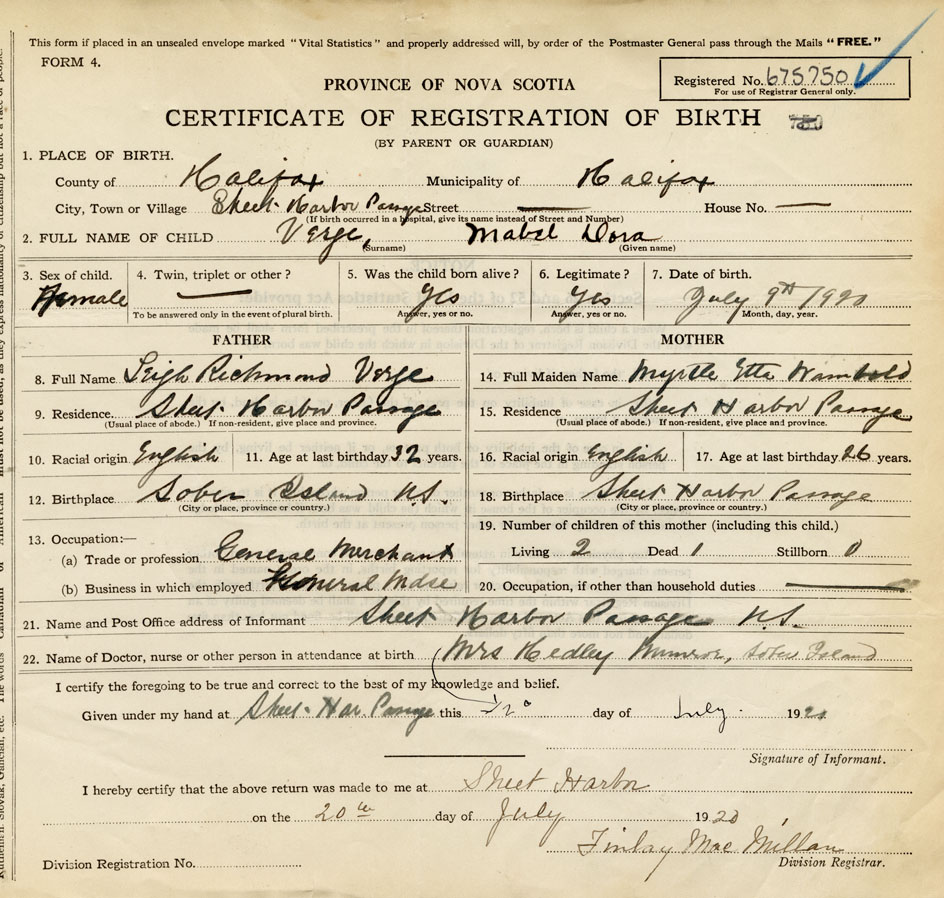 This form if placed in an unsealed envelope marked "Vital Statistics" and properly addressed will, by order of the Postmaster General pass through the Mails "FREE."
FORM 4.
Registered No. 675750
For use of Registrar General only.
PROVINCE OF NOVA SCOTIA
CERTIFICATE OF REGISTRATION OF BIRTH
(BY PARENT OR GUARDIAN)
1. PLACE OF BIRTH.
County of Halifax Municipality of Halifax
City, Town or Village Sheet Harbor Passage Street — House No. —
(If birth occurred in a hospital, give its name instead of Street and Number)
2. FULL NAME OF CHILD Verge, Mabel Dora
(Surname) (Given name)
3. Sex of child. 4. Twin, triplet or other? 5. Was the child born alive? 6. Legitimate? 7. Date of birth.
Female — Yes Yes July 9th 1920
To be answered only in the event of plural birth. Answer, yes or no. Answer, yes or no. Month, day, year.
FATHER
8. Full Name Leigh Richmond Verge
9. Residence. Sheet Harbor Passage
(Usual place of abode.) If non-resident, give place and province.
10. Racial origin English 11. Age at last birthday 32 years.
12. Birthplace Sober Island N.S.
(City or place, province or country.)
13. Occupation:—
(a) Trade or profession General Merchant
(b) Business in which employed General Mdse
MOTHER
14. Full Maiden Name Myrtle Etta Wambold
15. Residence Sheet Harbor Passage
(Usual place of abode.) If non-resident, give place and province.
16. Racial origin English 17. Age at last birthday 26 years.
18. Birthplace Sheet Harbor Passage
(City or place, province or country.)
19. Number of children of this mother (including this child.)
Living 2 Dead 1 Stillborn 0
20. Occupation, if other than household duties —
21. Name and Post Office address of Informant Sheet Harbor Passage N.S.
22. Name of Doctor, nurse or other person in attendance at birth Mrs Hedley Munroe, Sober Island
I certify the foregoing to be true and correct to the best of my knowledge and belief.
Given under my hand at Sheet Har Passage this 12 day of July 19
Signature of Informant.
I hereby certify that the above return was made to me at Sheet Harbor
on the 20th day of July 1920
Finlay MacMillan
Division Registration No. Division Registrar.